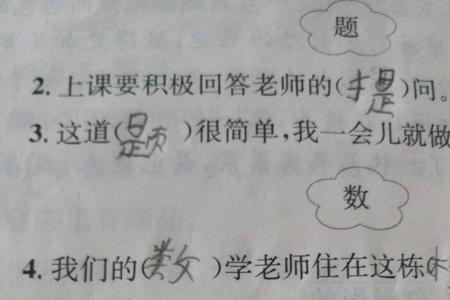 题
2. 上课要积极回答老师的(提)问。
3. 这道(题)很简单，我一会儿就做
数
4. 我们的(数)学老师住在这栋(